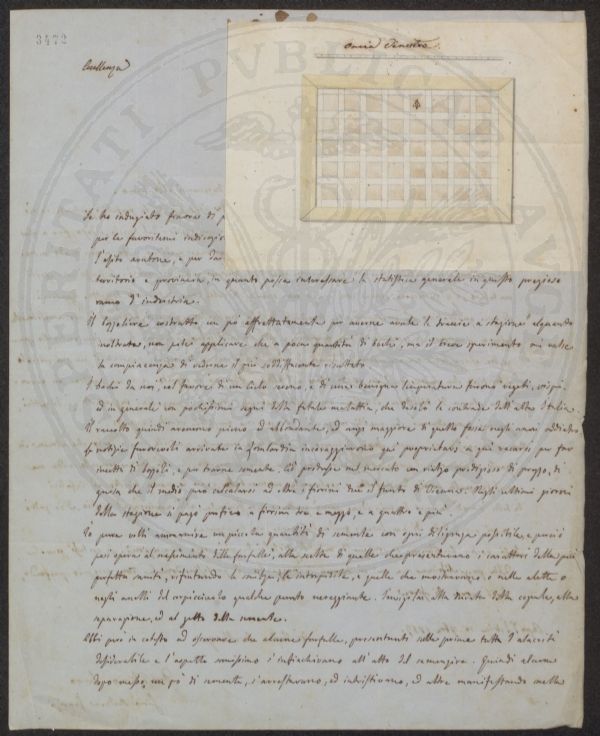 3472
Eccellenza
Se ho indugiato finora di
per le favoritemi
l'esito avutone, e per
territorio e provincia, in quanto possa interessare la statistica generale in questo prezioso
ramo d'industria.
Il costrutto un po' affrettatamente per averne avute le traccie a stagione alquanto
inoltrata, non potei applicare che a poca quantità di bachi, ma il breve sperimento mi valse
la compiacenza di vederne il più soddisfacente risultato.
I bachi da noi, col favore di un Cielo sereno, e di una benigna temperatura furono vegeti,
ed in generale con pochissimi segni della fatale malattia, che desolò le contrade dell'alta Italia.
Il raccolto quindi avemmo pieno ed abbondante, ed anzi maggiore di quello fosse negli anni addietro
Le notizie favorevoli arrivate in Lombardia incoraggiarono que' proprietari a qui recarsi per far
incetta di bozzoli, e per trarne semente. Ciò produsse sul mercato un rialzo prodigioso di prezzo, di
guisa che il medio può calcolarsi ad oltre i fiorini due il funto di Vienna. Negli ultimi giorni
della stagione si pagò perfino a fiorini tre e mezzo, e a quattro e più.
Io pure volli una piccola quantità di semente con ogni diligenza possibile, e perciò
posi opera al nascimento delle farfalle, alla scelta di quelle che presentavano i caratteri della più
perfetta sanità, rifiutando le e quelle che mostravano o nelle alette o
negli anelli del corpicciuolo qualche punto nereggiante. alla durata della copula, alla
separazione, ed al getto della semente.
Ebbi però in cotesto ad osservare che alcune farfalle, presentanti sulle prime tutta l'alacrità
desiderabile e l'aspetto sanissimo s'infiacchivano all'atto del semengire. Quindi alcune
dopo messo un po' di semente, s'arrestavano, ed intristivano, ed altre manifestando nella